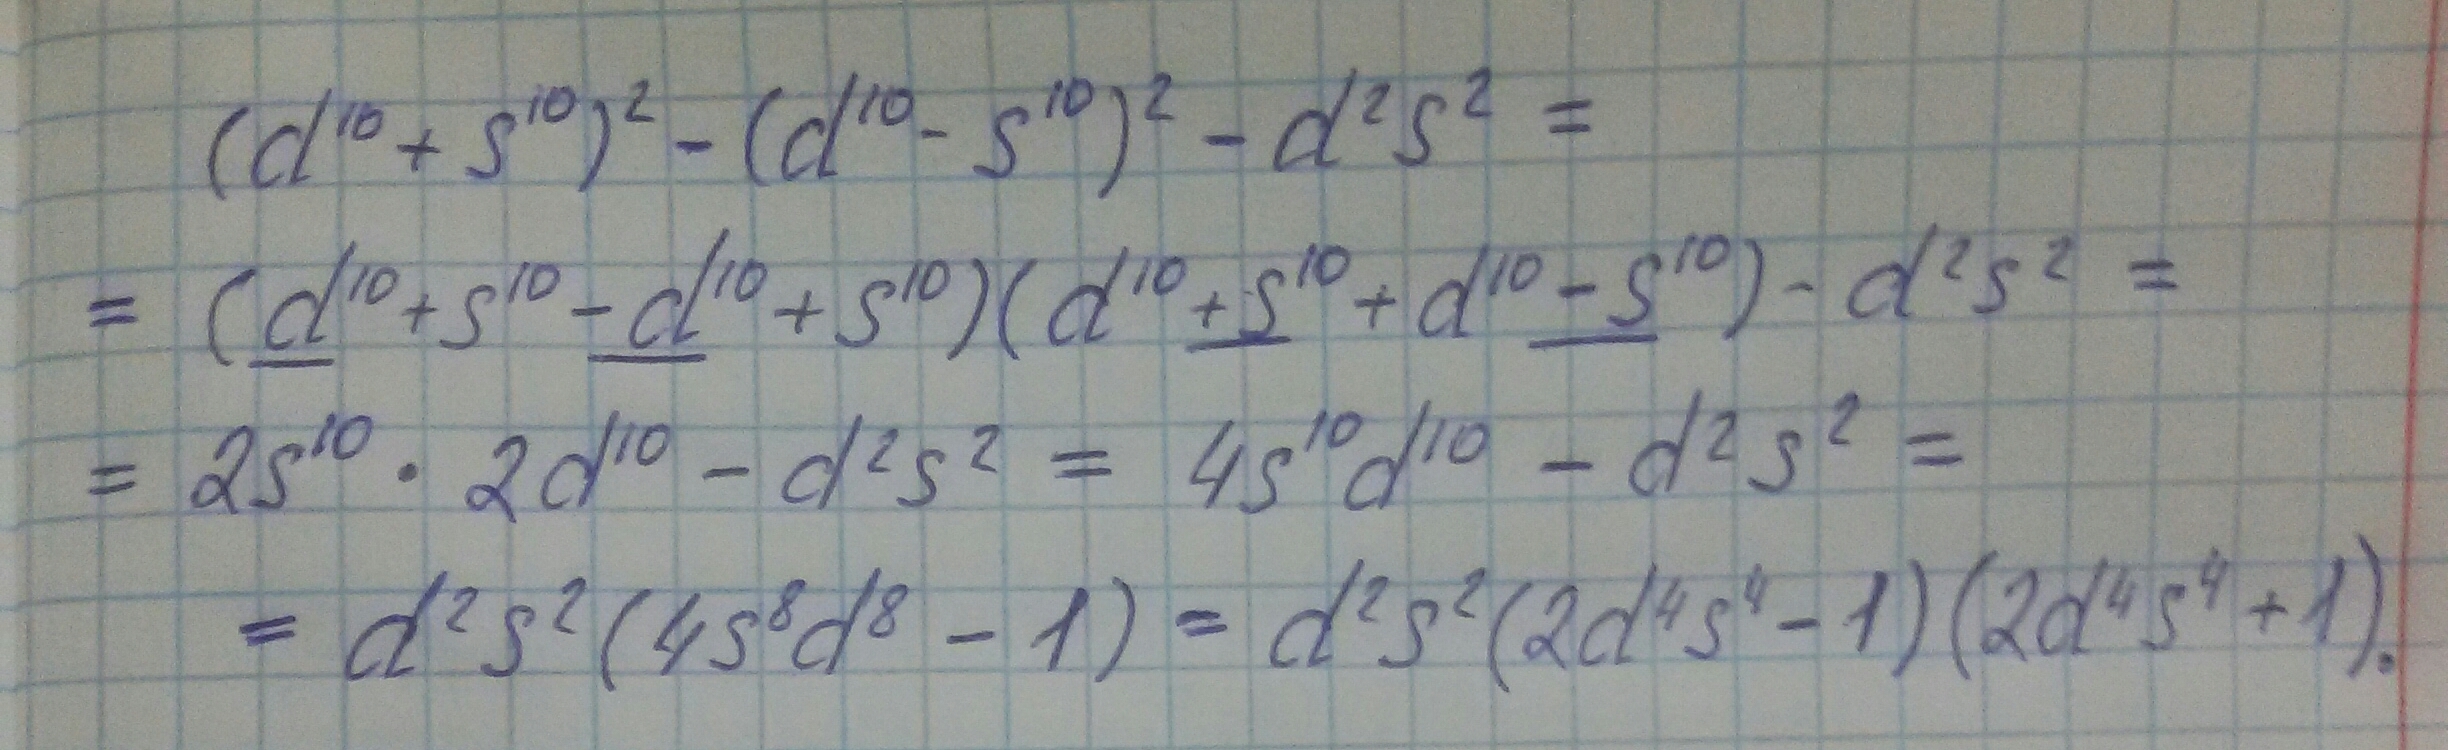 (d¹⁰ + s¹⁰)² - (d¹⁰ - s¹⁰)² - d²s² =
= (d¹⁰ + s¹⁰ - d¹⁰ + s¹⁰)(d¹⁰ + s¹⁰ + d¹⁰ - s¹⁰) - d²s² =
= 2s¹⁰ · 2d¹⁰ - d²s² = 4s¹⁰d¹⁰ - d²s² =
= d²s²(4s⁸d⁸ - 1) = d²s²(2d⁴s⁴ - 1)(2d⁴s⁴ + 1).